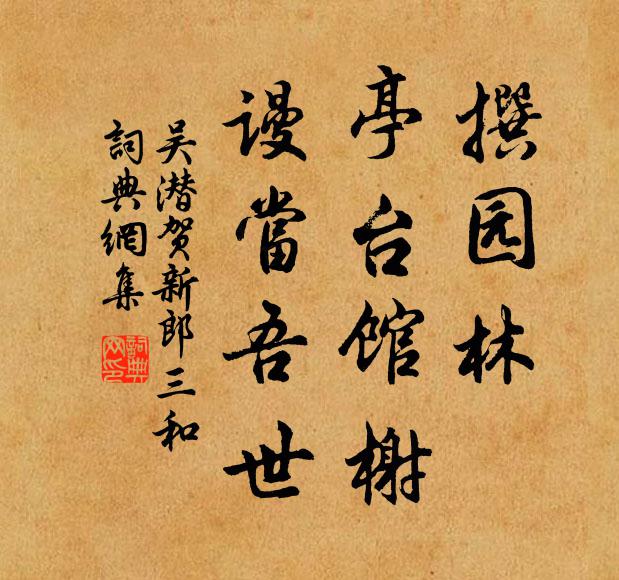 撰园林
亭台馆榭
谩當吾世
吴潜贺新郎三和
詞典網集
詞典网印